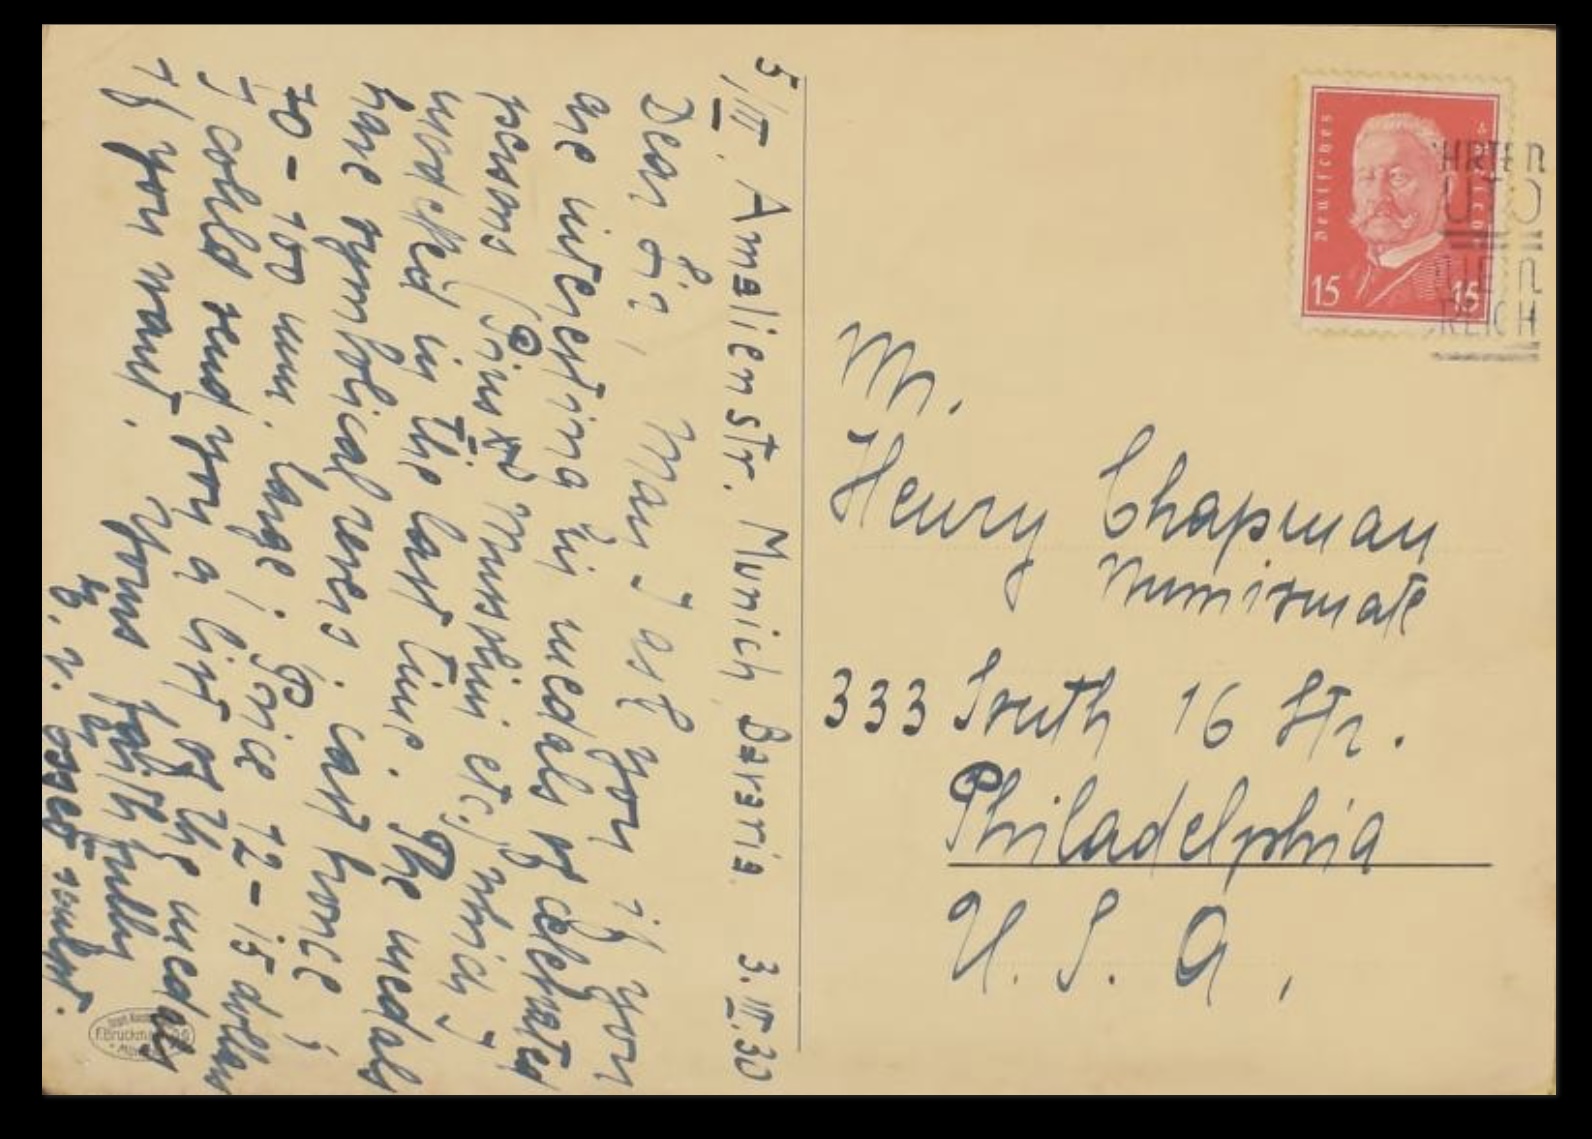 5/III. Amalienstr. Munich Bavaria 3.III.30
Dear Sir, May I ask you if you
are interesting in medals of celebrated
persons (Prinstt Mussolini etc.) which I
modelled in the last time. The medals
have symbolical revers; cast bronce;
70-100 mm. large; Price 12-15 dollars
I could send you a list of the medals
if you want. Yours faithfully
Deutsches Reich
15 15
HRTEN
UTO
REICH
Mr.
Henry Chapman
Numismate
333 South 16 Str.
Philadelphia
U. S. A,
F. Bruckmann AG